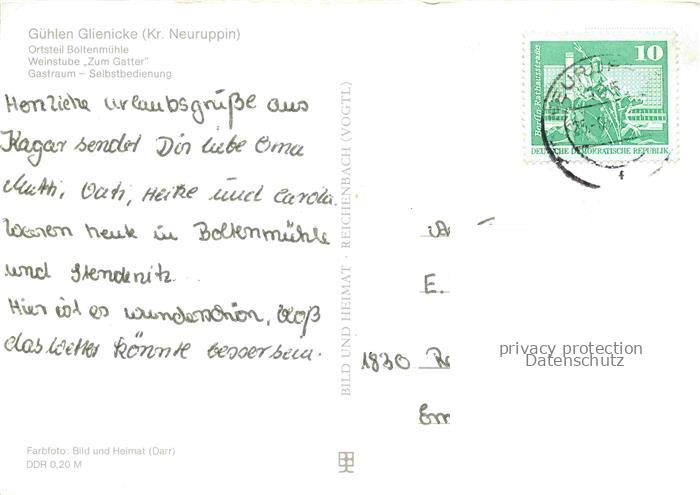 Gühlen Glienicke (Kr. Neuruppin)
Ortsteil Boltenmühle
Weinstube „Zum Gatter"
Gastraum – Selbstbedienung
Herzliche Urlaubsgrüße aus
Kagar sendet Dir liebe Oma
Mutti, Vati, Heike und Carola.
Waren heute in Boltenmühle
und Stendenitz.
Hier ist es wunderschön, bloß
das Wetter könnte besser sein.
Farbfoto: Bild und Heimat (Darr)
DDR 0,20 M
BILD UND HEIMAT · REICHENBACH (VOGTL)
Berlin-Rathausstraße
10
DEUTSCHE DEMOKRATISCHE REPUBLIK
E.
1830
privacy protection
Datenschutz